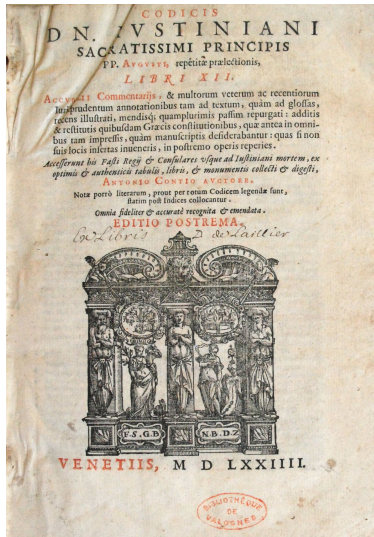 CODICIS
DN. IVSTINIANI
SACRATISSIMI PRINCIPIS
PP. AVGVSTI, repetitæ prælectionis,
LIBRI XII.
Accursii Commentarijs, & multorum veterum ac recentiorum
Iurisprudentum annotationibus tam ad textum, quàm ad glossas,
recens illustrati, mendisq; quamplurimis passim repurgati: additis
& restitutis quibusdam Græcis constitutionibus, quæ antea in omni-
bus tam impressis, quàm manuscriptis desiderabantur: quas si non
suis locis insertas inueneris, in postremo operis reperies.
Accesserunt his Fasti Regij & Consulares vsque ad Iustiniani mortem, ex
optimis & authenticis tabulis, libris, & monumentis collecti & digesti,
ANTONIO CONTIO AVCTORE.
Notæ porrò literarum, prout per totum Codicem legendæ sunt,
statim post Indices collocantur.
Omnia fideliter & accuratè recognita & emendata.
EDITIO POSTREMA.
Ex Libris D de Laillier
F. S. G. B N. B. D. Z
VENETIIS, M D LXXIIII.
BIBLIOTHÈQUE
DE
VALOGNES